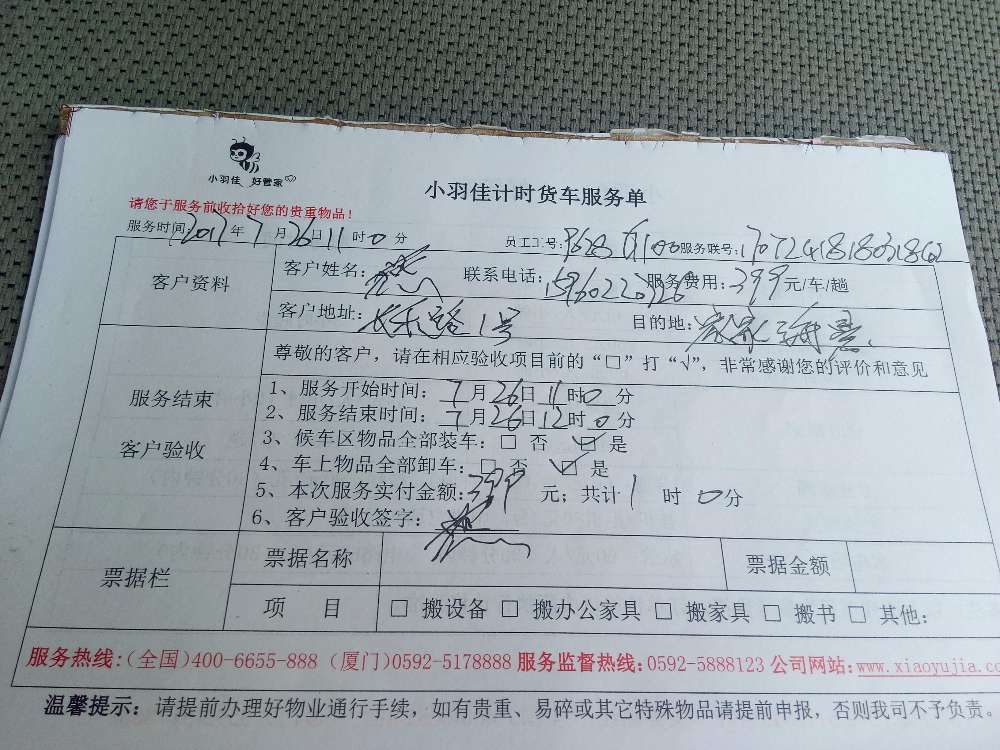 小羽佳 好管家
小羽佳计时货车服务单
请您于服务前收拾好您的贵重物品！
服务时间：2017年7月26日11时0分 员工工号： 服务联号：
客户资料
客户姓名： 联系电话： 服务费用：399元/车/趟
客户地址：长乐路1号 目的地：
尊敬的客户，请在相应验收项目前的“□”打“√”，非常感谢您的评价和意见
服务结束
客户验收
1、服务开始时间：7月26日11时0分
2、服务结束时间：7月26日12时0分
3、候车区物品全部装车：□ 否 ☑ 是
4、车上物品全部卸车：□ 否 ☑ 是
5、本次服务实付金额：399元；共计1时0分
6、客户验收签字：
票据栏
票据名称 票据金额
项 目 □ 搬设备 □ 搬办公家具 □ 搬家具 □ 搬书 □ 其他：
服务热线：（全国）400-6655-888（厦门）0592-5178888 服务监督热线：0592-5888123 公司网站：www.xiaoyujia.co
温馨提示：请提前办理好物业通行手续，如有贵重、易碎或其它特殊物品请提前申报，否则我司不予负责。